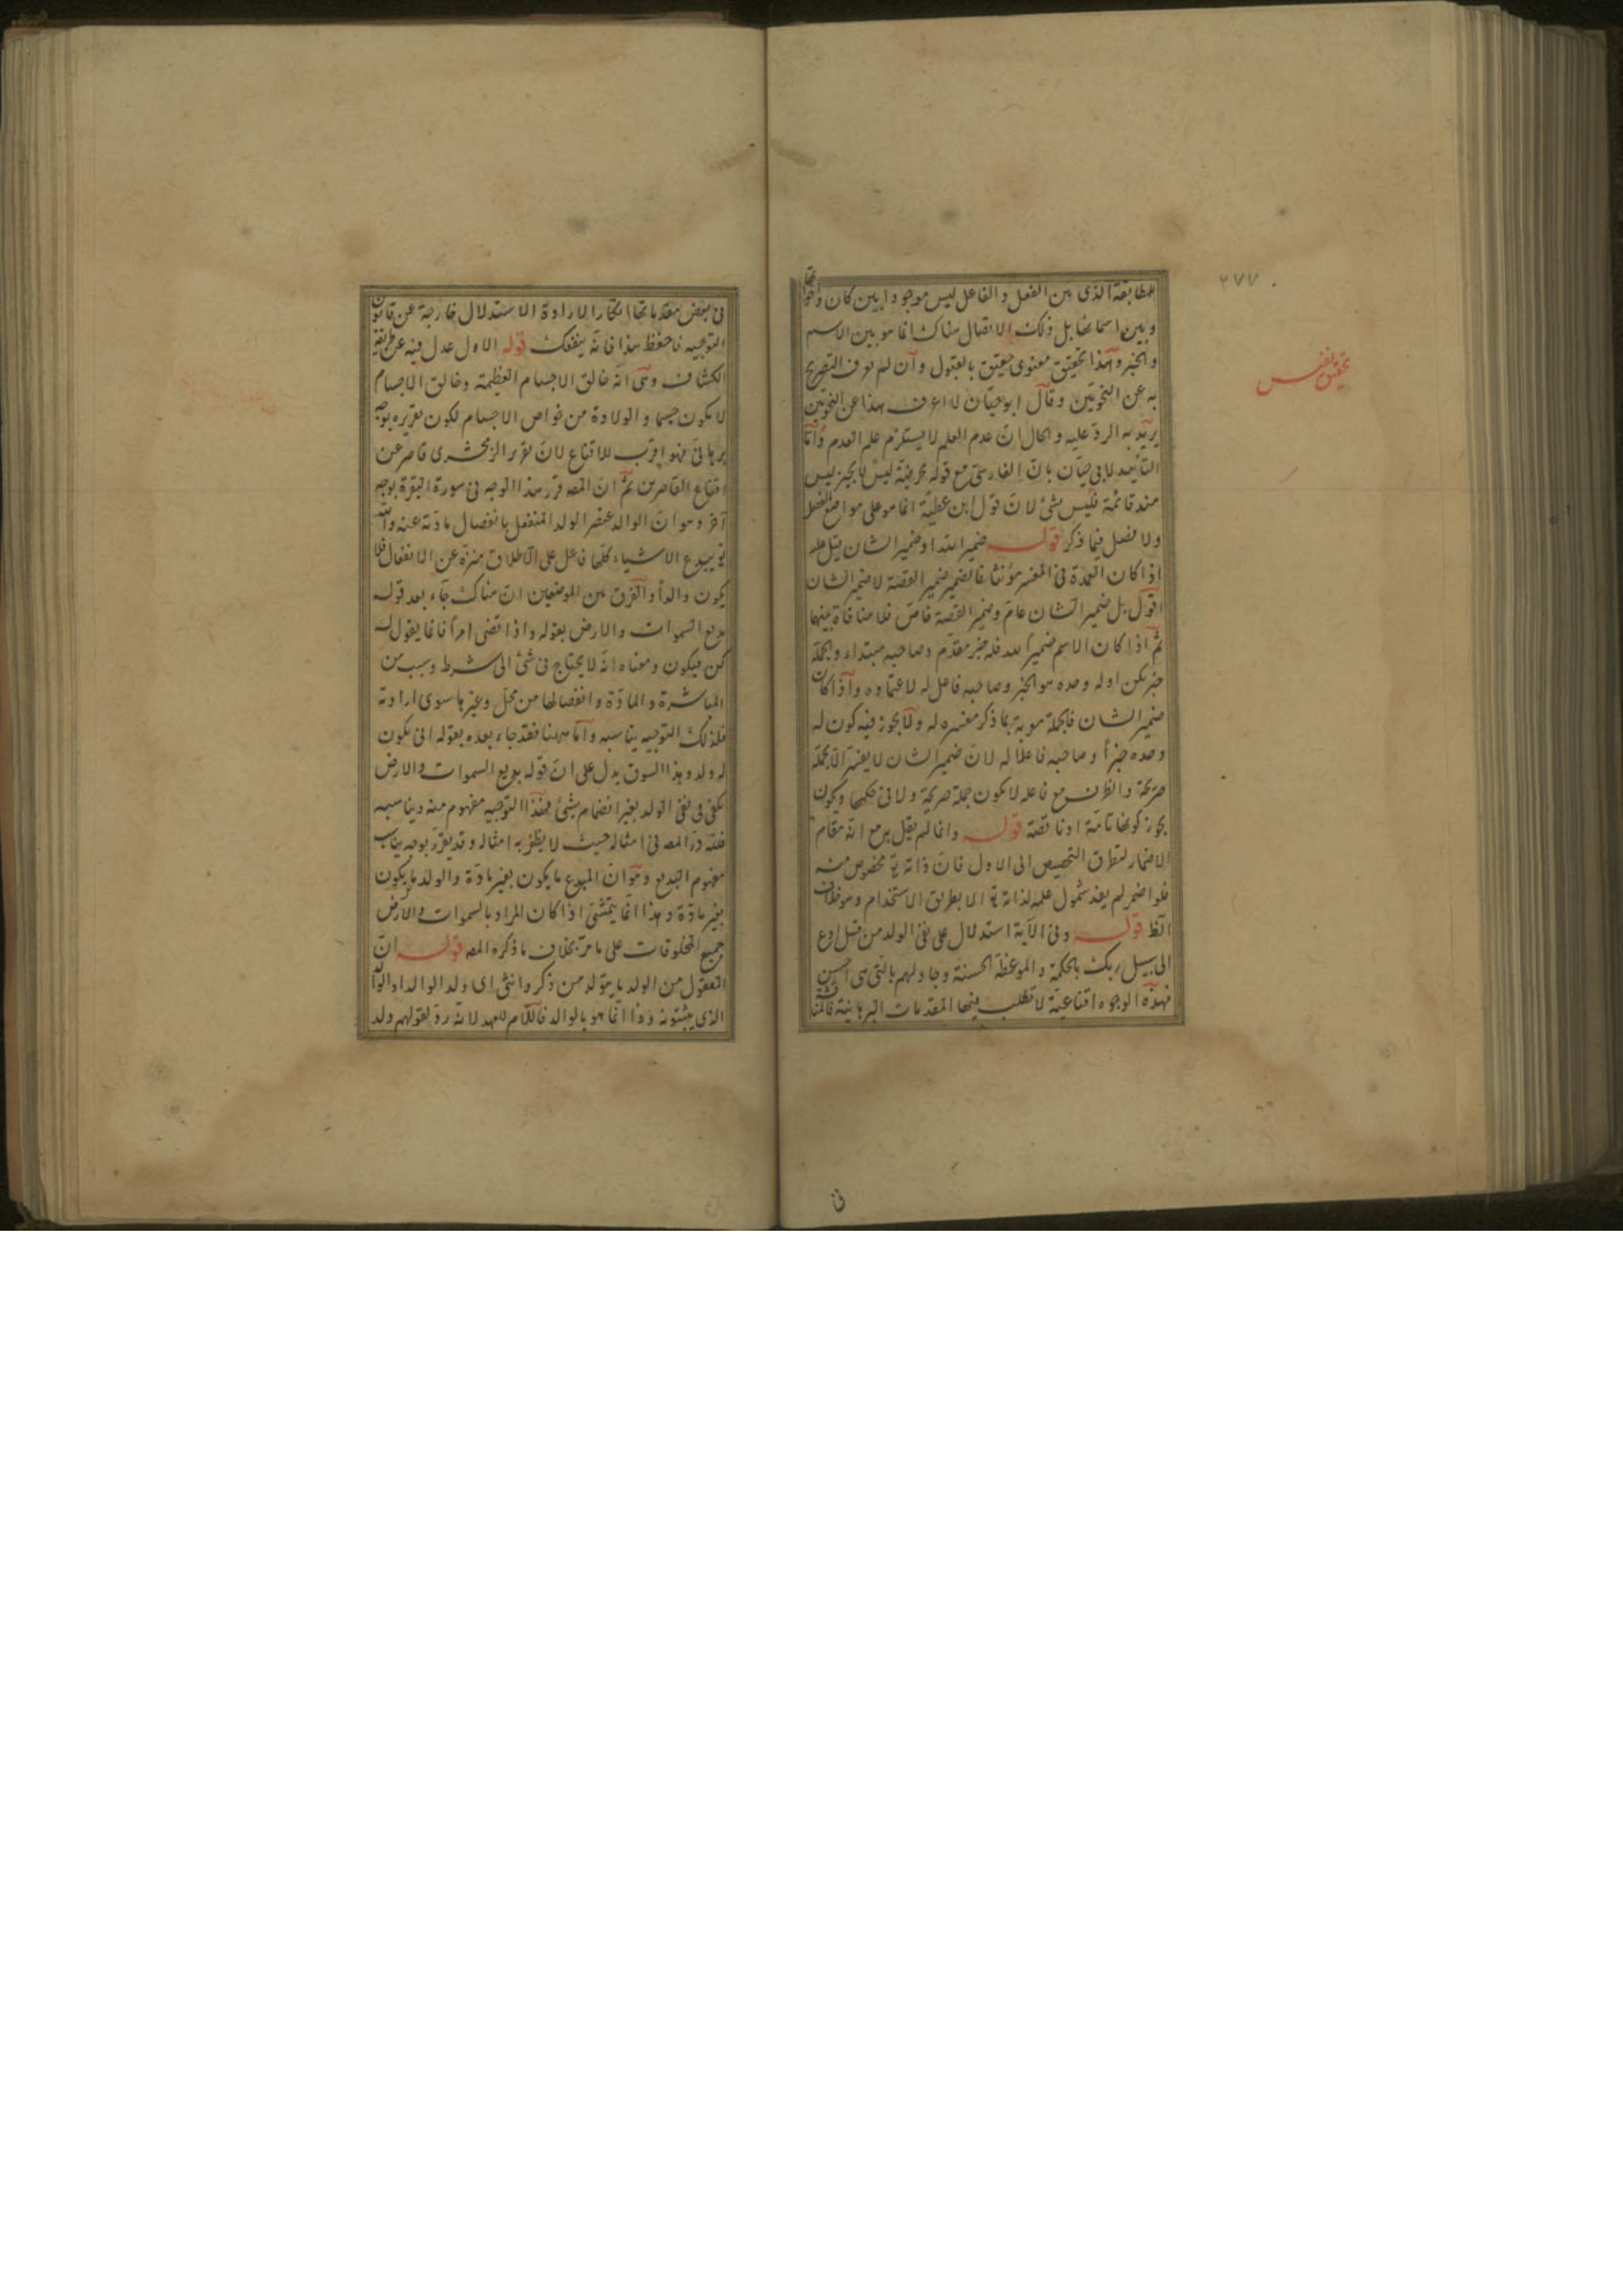 ٢٧٧
للمطابقة الذى بين الفعل والفاعل ليس موجودا بين كان واخواتها
وبين اسمائها بل ذلك الاتصال هناك انما هو بين الاسم
والخبر وهذا تحقيق معنوى حقيق بالقبول وان لم نعرف التصريح
به عن النحويين وقال ابو حيان لا اعرف هذا عن النحويين
تحقيق نفيس
يريد به الرد عليه والحال ان عدم العلم لا يستلزم علم العدم واما
التأييد لابى حيان بان الفارسى مع قوله بحرفية ليس لا يجيز ليس
هند قائمة فليس بشئ لان قول ابن عطية انما هو على مواضع الفصل
ولا فصل فيما ذكر قوله ضمير الله او ضمير الشان قيل عليه
اذا كان العمدة فى المفسر مؤنثا فالضمير ضمير القصة لا ضمير الشان
اقول بل ضمير الشان عام وضمير القصة خاص فلا منافاة بينهما
ثم اذا كان الاسم ضميرا لله فله خبر مقدم وصاحبة مبتداء والجملة
خبر يكن اوله وحده هو الخبر وصاحبة فاعل له لاعتماده واذا كان
ضمير الشان فالجملة هو به بما ذكر مفسره له ولا يجوز فيه كون له
وحده خبرا وصاحبة فاعلا له لان ضمير الشان لا يفسر الا بجملة
صريحة والظرف مع فاعله لا يكون جملة صريحة ولا فى حكمها ويكون
يجوز كونها تامة او ناقصة قوله وانما لم يقل به مع انه مقام
الاضمار لتطرق التخصيص الى الاول فان ذاته تع مخصوص منه
فلو اضمر لم يفد شمول علمه لذاته تع الا بطريق الاستخدام وهو خلاف
الظ قوله وفى الآية استدلال على نفى الولد من قبيل ادع
الى سبيل ربك بالحكمة والموعظة الحسنة وجادلهم بالتى هى احسن
فهذه الوجوه اقناعية لا تطلب فيها المقدمات البرهانية فالمناقشة
فى
فى بعض مقدماتها انكارا لارادة الاستدلال خارجة عن قانون
التوجيه فاحفظ هذا فانه ينفعك قوله الاول عدل فيه عن طريقة
الكشاف وهى انه خالق الاجسام العظيمة وخالق الاجسام
لا يكون جسما والولادة من خواص الاجسام لكون تقريره بوجه
برهانى فهو اقرب للاقناع لان تقرير الزمخشرى قاصر عن
اقناع القاصرين ثم ان المصه قرر هذا الوجه فى سورة البقرة بوجه
آخر وهو ان الوالد عنصر الولد المنفعل بانفصال مادته عنه والله
تع مبدع الاشياء كلها فاعل على الاطلاق منزه عن الانفعال فلا
يكون والدا والفرق بين الموضعين ان هناك جاء بعد قوله
بديع السموات والارض بقوله واذا قضى امرا فانما يقول له
كن فيكون ومعناه انه لا يحتاج فى شئ الى شرط وسبب من
المباشرة والمادة وانفصالها من محل وغيرها سوى ارادته
فلذلك التوجيه يناسبه واما ههنا فقد جاء بعده بقوله انى يكون
له ولد وهذا السوق يدل على ان قوله بديع السموات والارض
يكفى فى نفى الولد بغير انضمام شئ فهذا التوجيه مفهوم منه ويناسبه
فلله در المصه فى امثاله حيث لا يظفر به امثاله وقد يقرر بوجه يناسب
مفهوم البديع وهو ان المبدع ما يكون بغير مادة والولد ما يكون
بغير مادة وهذا انما يتمشى اذا كان المراد بالسموات والارض
جميع المخلوقات على ما مر بخلاف ما ذكره المصه قوله ان
المعقول من الولد ما يتولد من ذكر وانثى اى ولد الوالد او الولد
الذى يثبتونه وذا انما هو بالوالد فاللام للعهد لانه رد لقولهم ولد